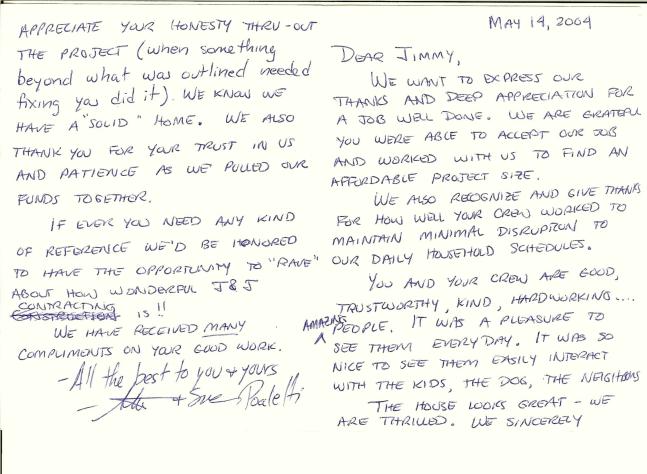 MAY 14, 2004
DEAR JIMMY,
WE WANT TO EXPRESS OUR
THANKS AND DEEP APPRECIATION FOR
A JOB WELL DONE. WE ARE GRATEFUL
YOU WERE ABLE TO ACCEPT OUR JOB
AND WORKED WITH US TO FIND AN
AFFORDABLE PROJECT SIZE.
WE ALSO RECOGNIZE AND GIVE THANKS
FOR HOW WELL YOUR CREW WORKED TO
MAINTAIN MINIMAL DISRUPTION TO
OUR DAILY HOUSEHOLD SCHEDULES.
YOU AND YOUR CREW ARE GOOD,
TRUSTWORTHY, KIND, HARDWORKING....
AMAZING PEOPLE. IT WAS A PLEASURE TO
SEE THEM EVERYDAY. IT WAS SO
NICE TO SEE THEM EASILY INTERACT
WITH THE KIDS, THE DOG, THE NEIGHBORS
THE HOUSE LOOKS GREAT - WE
ARE THRILLED. WE SINCERELY
APPRECIATE YOUR HONESTY THRU-OUT
THE PROJECT (when something
beyond what was outlined needed
fixing you did it). WE KNOW WE
HAVE A "SOLID" HOME. WE ALSO
THANK YOU FOR YOUR TRUST IN US
AND PATIENCE AS WE PULLED OUR
FUNDS TOGETHER.
IF EVER YOU NEED ANY KIND
OF REFERENCE WE'D BE HONORED
TO HAVE THE OPPORTUNITY TO "RAVE"
ABOUT HOW WONDERFUL J&J
CONTRACTING
CONSTRUCTION IS !!
WE HAVE RECEIVED MANY
COMPLIMENTS ON YOUR GOOD WORK.
-All the best to you & yours
- & Sue Paoletti